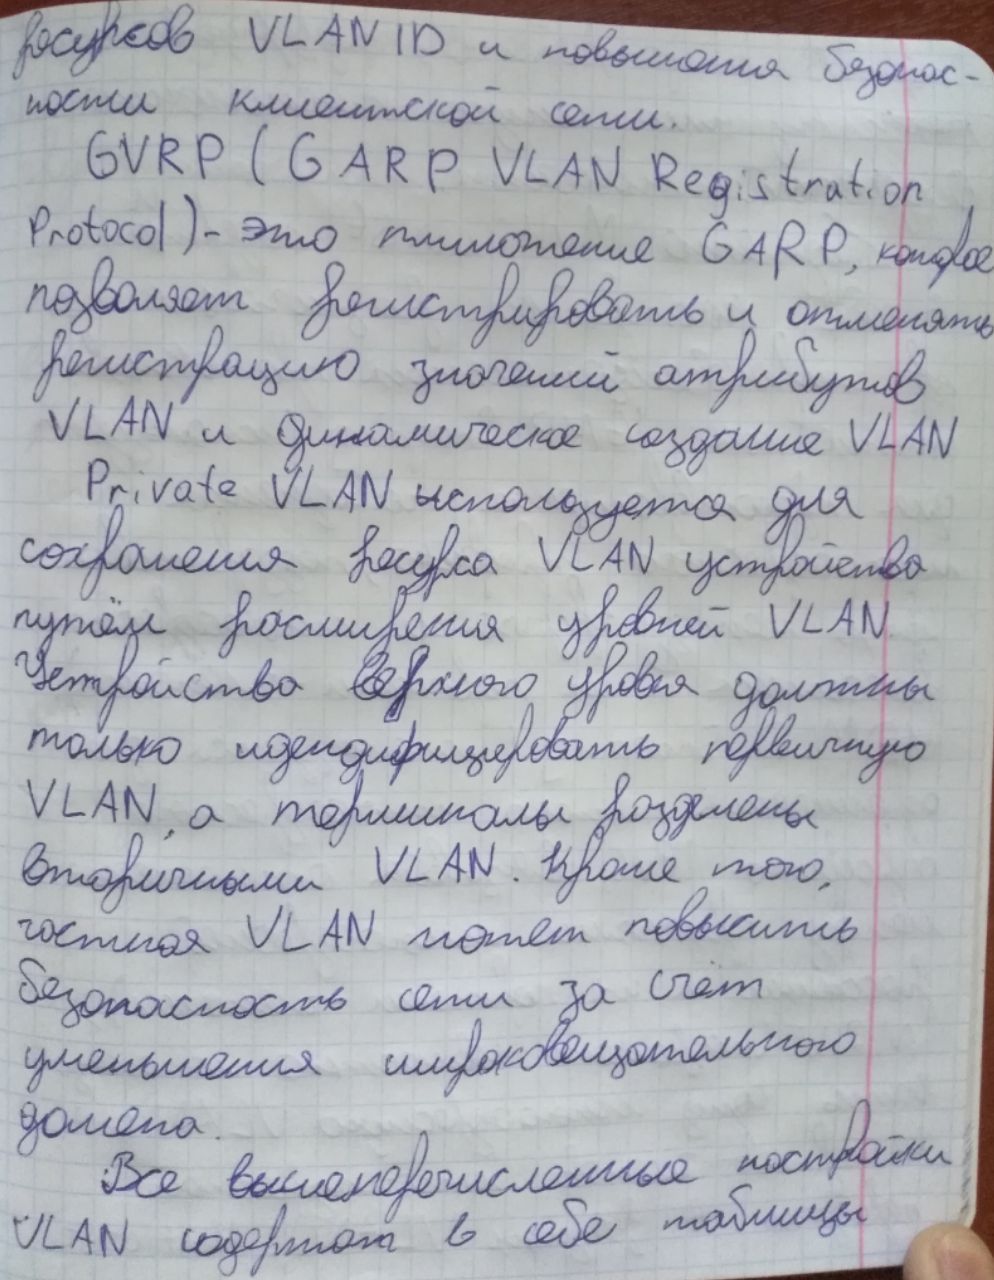 ресурсов VLAN ID и повышения безопас-
ности клиентской сети.
GVRP (GARP VLAN Registration
Protocol) - это приложение GARP, которое
позволяет регистрировать и отменять
регистрацию значений атрибутов
VLAN и динамическое создание VLAN
Private VLAN используется для
сохранения ресурса VLAN устройства
путём расширения уровней VLAN
Устройства верхнего уровня должны
только идендифицировать первичную
VLAN, а терминалы разделены
вторичными VLAN. Кроме того,
частная VLAN может повысить
безопасность сети за счёт
уменьшения широковещательного
домена.
Все вышеперечисленные постройки
VLAN содержат в себе таблицы